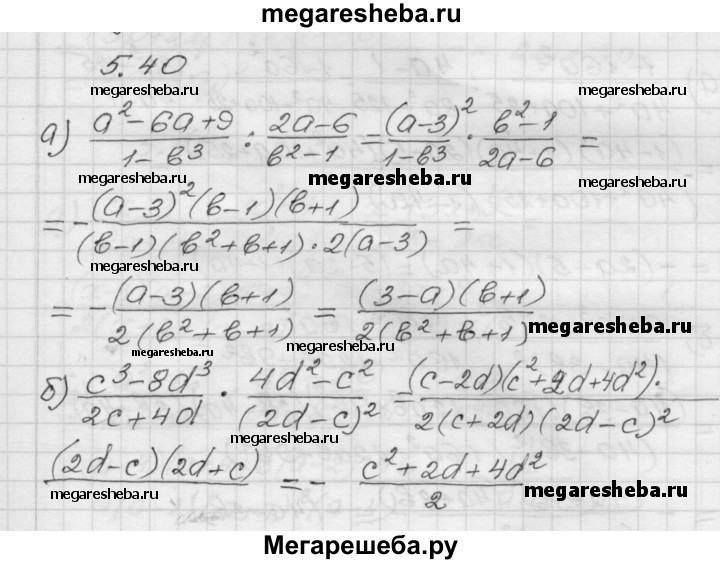 megaresheba.ru
5.40
megaresheba.ru megaresheba.ru megaresheba.ru
а) (a² - 6a + 9)/(1 - b³) : (2a - 6)/(b² - 1) = (a - 3)²/(1 - b³) · (b² - 1)/(2a - 6) =
megaresheba.ru megaresheba.ru megaresheba.ru
= - (a - 3)²(b - 1)(b + 1)/((b - 1)(b² + b + 1) · 2(a - 3)) =
megaresheba.ru
= - (a - 3)(b + 1)/(2(b² + b + 1)) = (3 - a)(b + 1)/(2(b² + b + 1))
megaresheba.ru megaresheba.ru megaresheba.ru
б) (c³ - 8d³)/(2c + 4d) · (4d² - c²)/(2d - c)² = (c - 2d)(c² + 2d + 4d²)·/(2(c + 2d)(2d - c)²)
megaresheba.ru
(2d - c)(2d + c)/ = - (c² + 2d + 4d²)/2
megaresheba.ru megaresheba.ru megaresheba.ru
Мегарешеба.ру